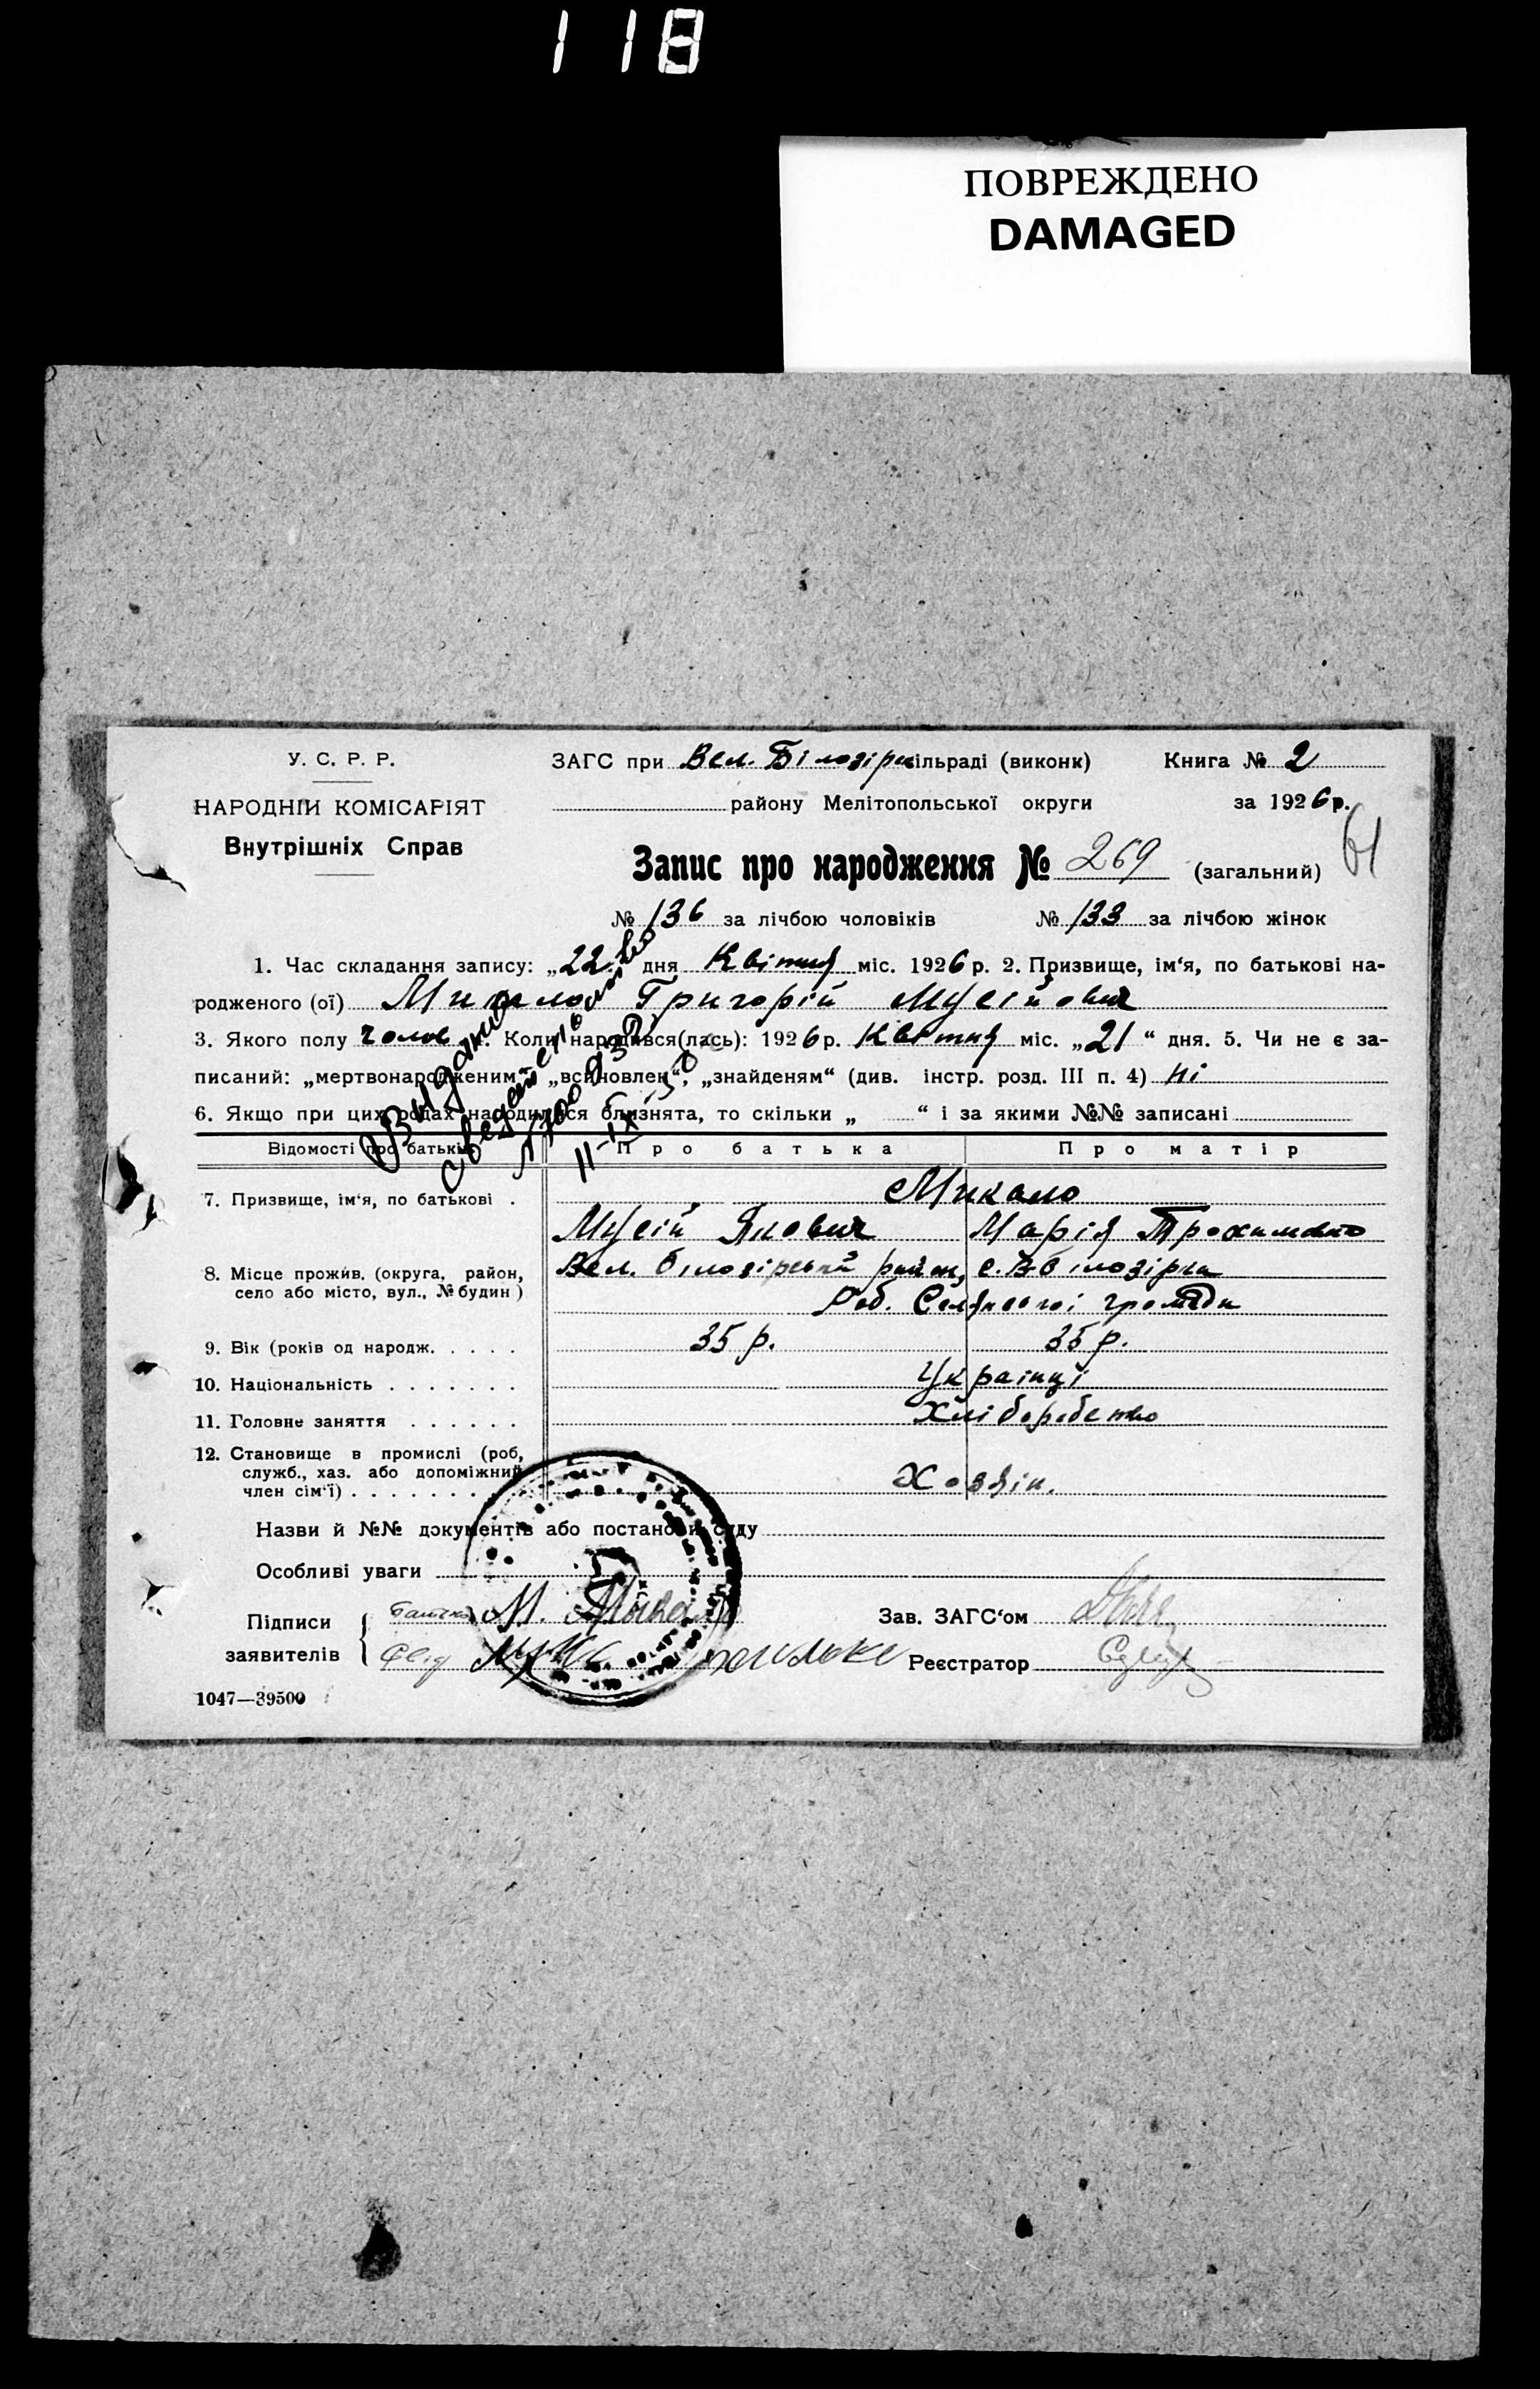 118
ПОВРЕЖДЕНО
DAMAGED
У. С. Р. Р.
НАРОДНІЙ КОМІСАРІЯТ
Внутрішніх Справ
ЗАГС при Вел. Білозірк сільраді (виконк) Книга № 2
району Мелітопольської округи за 1926 р.
61
Запис про народження № 269 (загальний)
№ 136 за лічбою чоловіків № 133 за лічбою жінок
1. Час складання запису: „22“ дня Квітня міс. 1926 р. 2. Призвище, ім‘я, по батькові на-
родженого (ої) Микало Григорій Мусійович
3. Якого полу чолов 4. Коли народився(лась): 1926 р. Квітня міс. „21“ дня. 5. Чи не є за-
писаний: „мертвонародженим“, „всиновлен“, „знайденям“ (див. інстр. розд. III п. 4) ні
6. Якщо при цих родах народилися близнята, то скільки „ “ і за якими №№ записані
Выдано
свидетельство
11-IX-
Відомості про батьків Про батька Про матір
7. Призвище, ім‘я, по батькові . Микало
Мусій Якович Марія Трохимовна
8. Місце прожив. (округа, район,
село або місто, вул., № будин)
Вел. Білозірський район, с. В-Білозірка
Селянської громади
9. Вік (років од народж. . . . . 35 р. 35 р.
10. Національність . . . . . . . Українці
11. Головне заняття . . . . . . Хліборобство
12. Становище в промислі (роб,
служб., хаз. або допоміжний
член сім‘ї) . . . . . . . . Хозяін.
Назви й №№ документів або постанови суду
Особливі уваги
Підписи
заявителів
батько М. Микало
свід
Зав. ЗАГС‘ом
Реєстратор
1047—39500